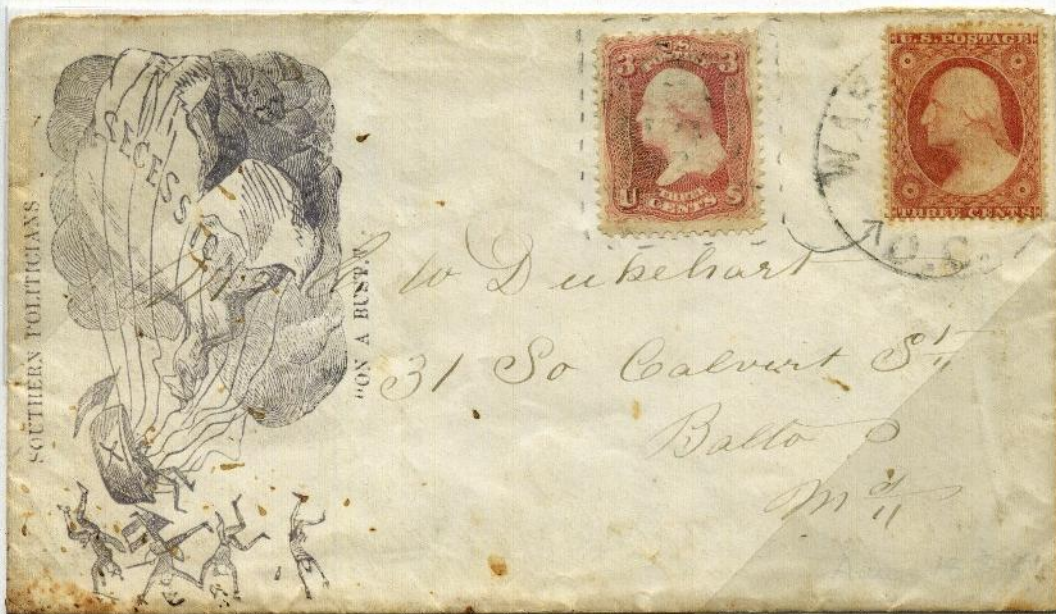 SOUTHERN POLITICIANS
SECESSION
"ON A BUST."
3 U.S. POSTAGE 3
U THREE CENTS S
U.S. POSTAGE
THREE CENTS
D.C.
W Dukehart
31 So Calvert St
Balto
Md